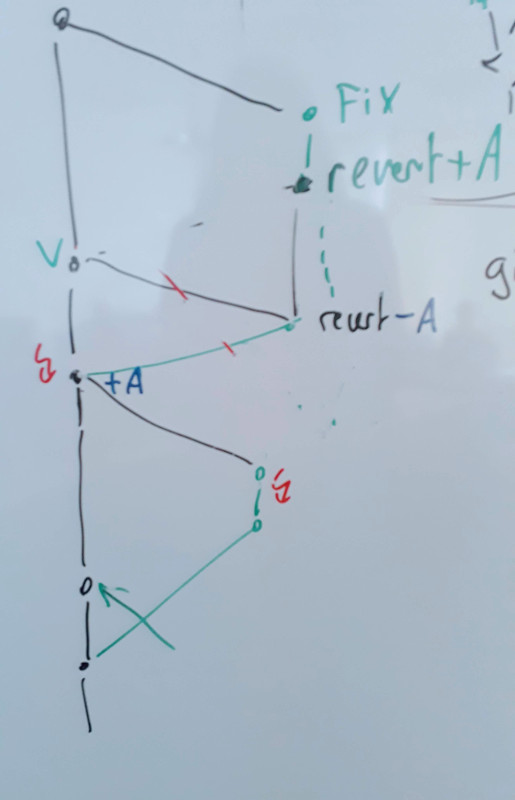 Fix
revert+A
V
revert-A
+A